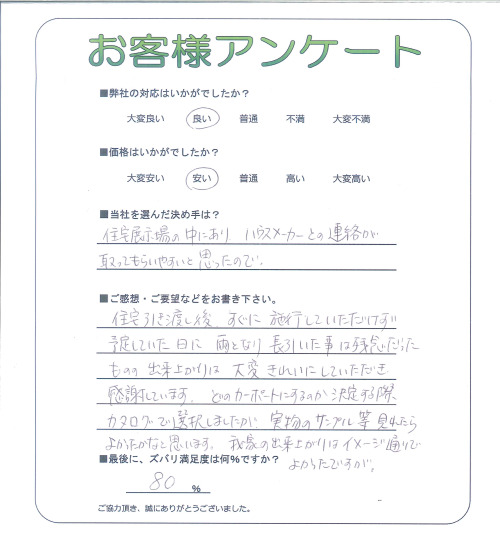 お客様アンケート
■弊社の対応はいかがでしたか？
大変良い 良い 普通 不満 大変不満
■価格はいかがでしたか？
大変安い 安い 普通 高い 大変高い
■当社を選んだ決め手は？
住宅展示場の中にあり ハウスメーカーとの連絡が
取ってもらいやすいと思ったので。
■ご感想・ご要望などをお書き下さい。
住宅引き渡し後、すぐに施行していただけず
予定していた日に 雨となり 長引いた事は残念だった
ものの 出来上がりは 大変きれいにしていただき
感謝しています。どのカーポートにするのか決定する際、
カタログで選択しましたが、実物のサンプル等見れたら
よかったかなと思います。我家の出来上がりはイメージ通りで
よかったですが。
■最後に、ズバリ満足度は何％ですか？
80 %
ご協力頂き、誠にありがとうございました。